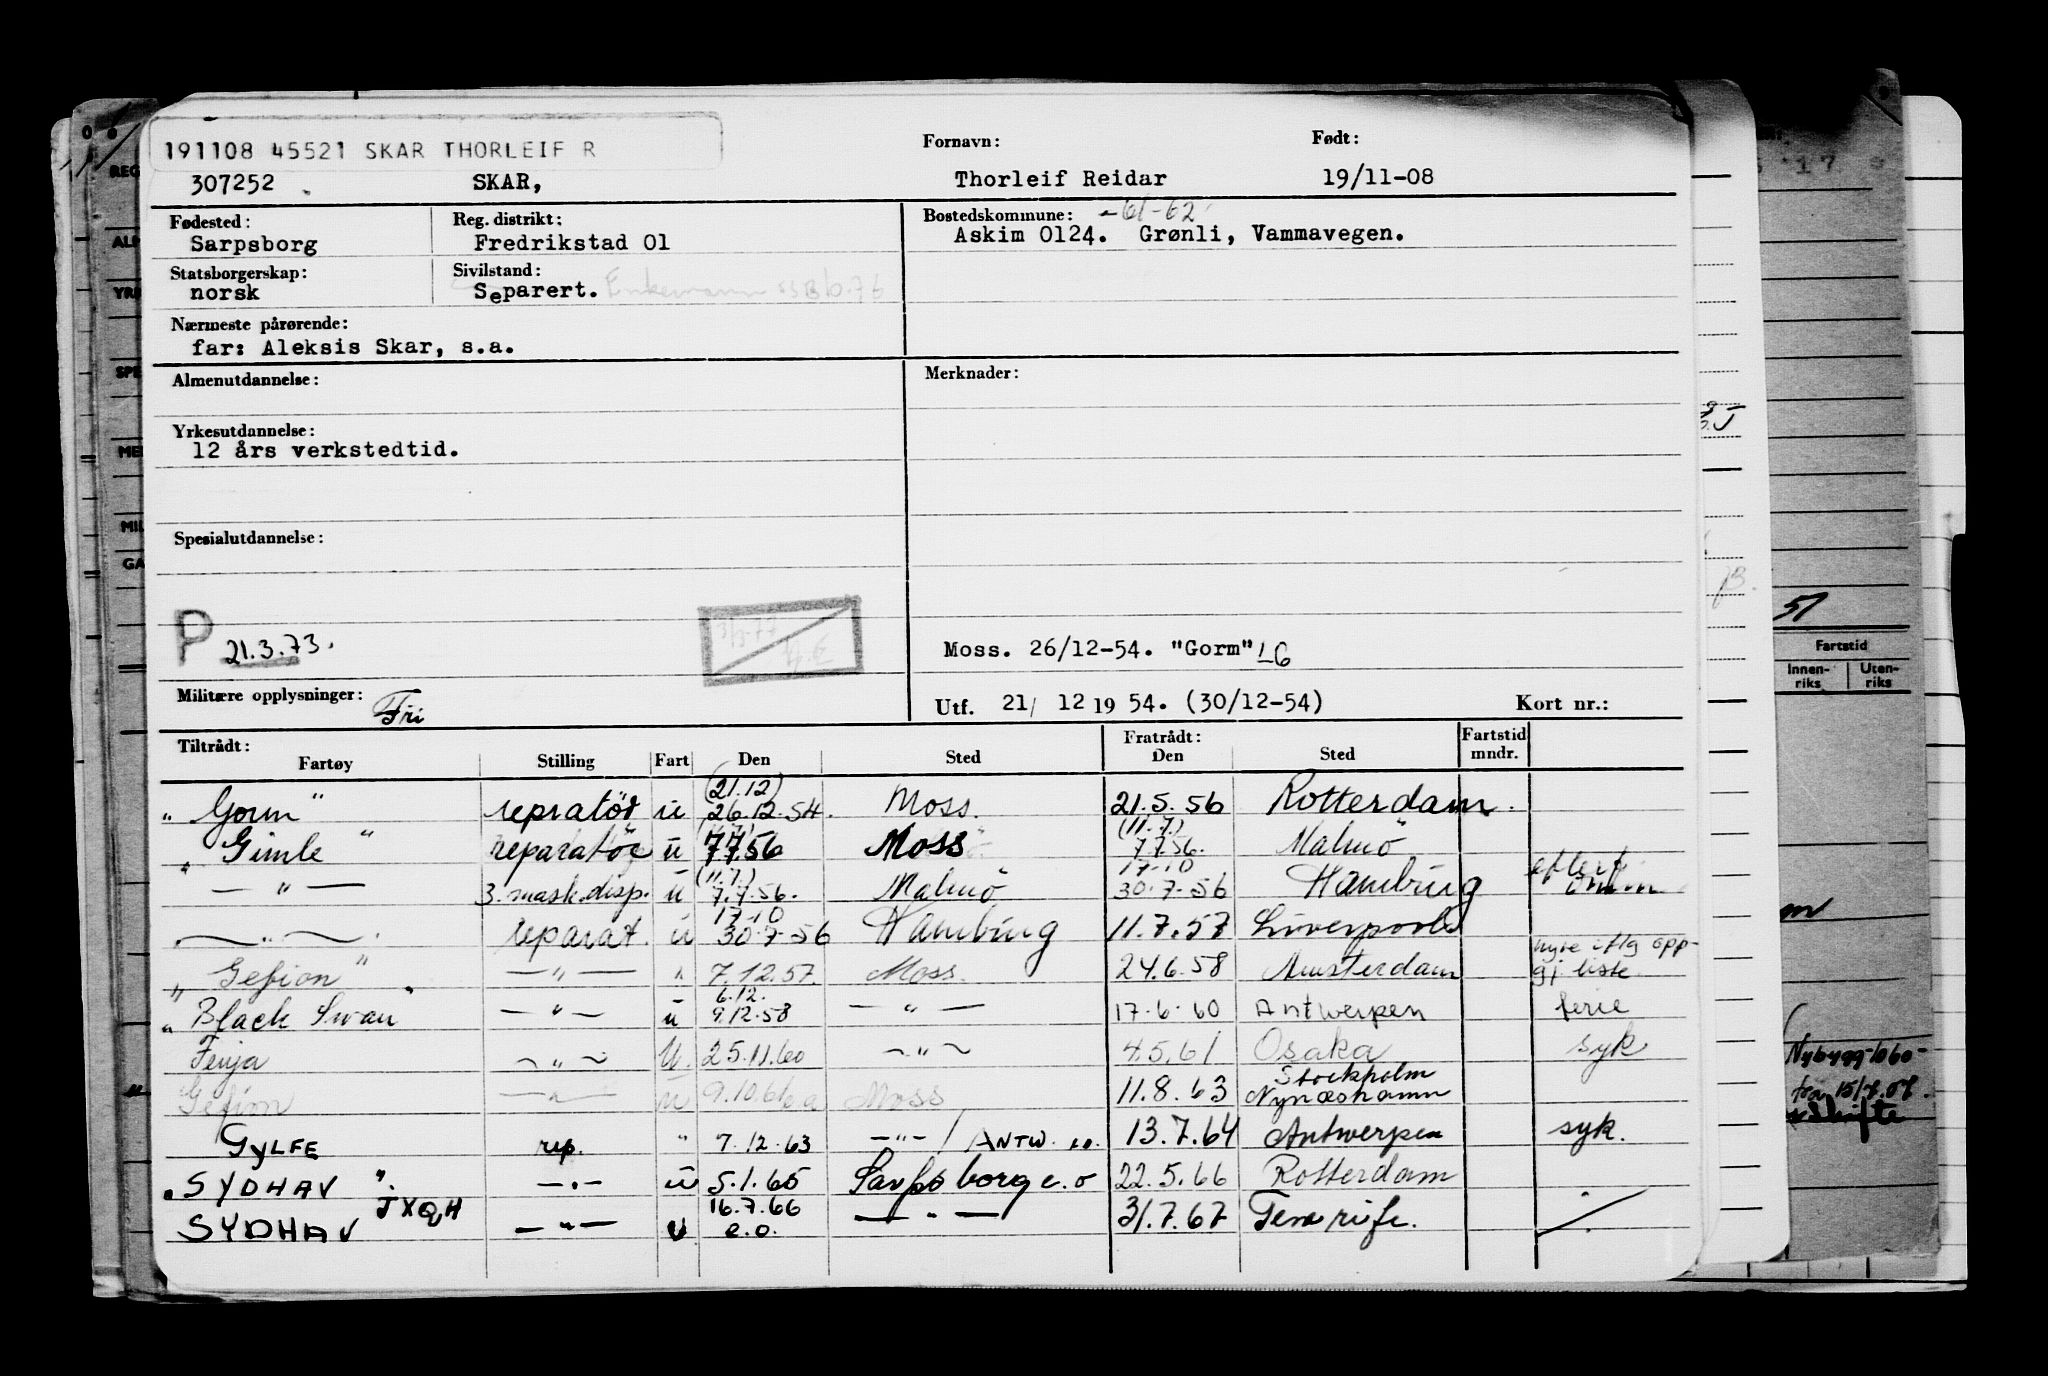 191108 45521 SKAR THORLEIF R
Fornavn: Født:
307252 SKAR, Thorleif Reidar 19/11-08
Fødested: Reg. distrikt: Bostedskommune: -61-62
Sarpsborg Fredrikstad 01 Askim 0124. Grønli, Vammavegen.
Statsborgerskap: Sivilstand:
norsk Separert. Enkemann SSB 6.76
Nærmeste pårørende:
far: Aleksis Skar, s.a.
Almenutdannelse: Merknader:
Yrkesutdannelse:
12 års verkstedtid.
Spesialutdannelse:
P 21.3.73.
Moss. 26/12-54. "Gorm" LG
Militære opplysninger: Fri
Utf. 21/ 12 19 54. (30/12-54) Kort nr.:
Tiltrådt: Fratrådt: Fartstid
Fartøy Stilling Fart Den Sted Den Sted mndr.
(21.12)
"Gorm" repratör u 26.12.54. Moss. 21.5.56 Rotterdam.
(11.7.)
"Gimle" reparatör u 7.7.56 Moss 7.7.56. Malmö
(11.7.) 17-10
— " — 3. mask.disp. u 7.7.56. Malmö 30.7.56 Hamburg
17-10
— " — reparat. u 30.7.56 Hamburg 11.7.57 Liverpool
"Gefion" — " — " 7.12.57. Moss. 24.6.58 Amsterdam hyre iflg opp-
gj. liste
6.12.
"Black Swan — " — u 9.12.58 — " — 17.6.60 Antwerpen ferie
Fenja — " — U. 25.11.60 — " — 4.5.61 Osaka syk
Stockholm
Gefion — " — u 9.10.61 Moss 11.8.63 Nynäshamn
GYLFE rep. " 7.12.63 — " — / ANTW. e.o. 13.7.64 Antwerpen syk.
"SYDHAV" — " — u 5.1.65 Sarpsborg e.o 22.5.66 Rotterdam
JXQH 16.7.66
SYDHAV — " — u e.o. — " — 31.7.67 Tenerife.
Fartstid
Innen-
riks
Uten-
riks
51